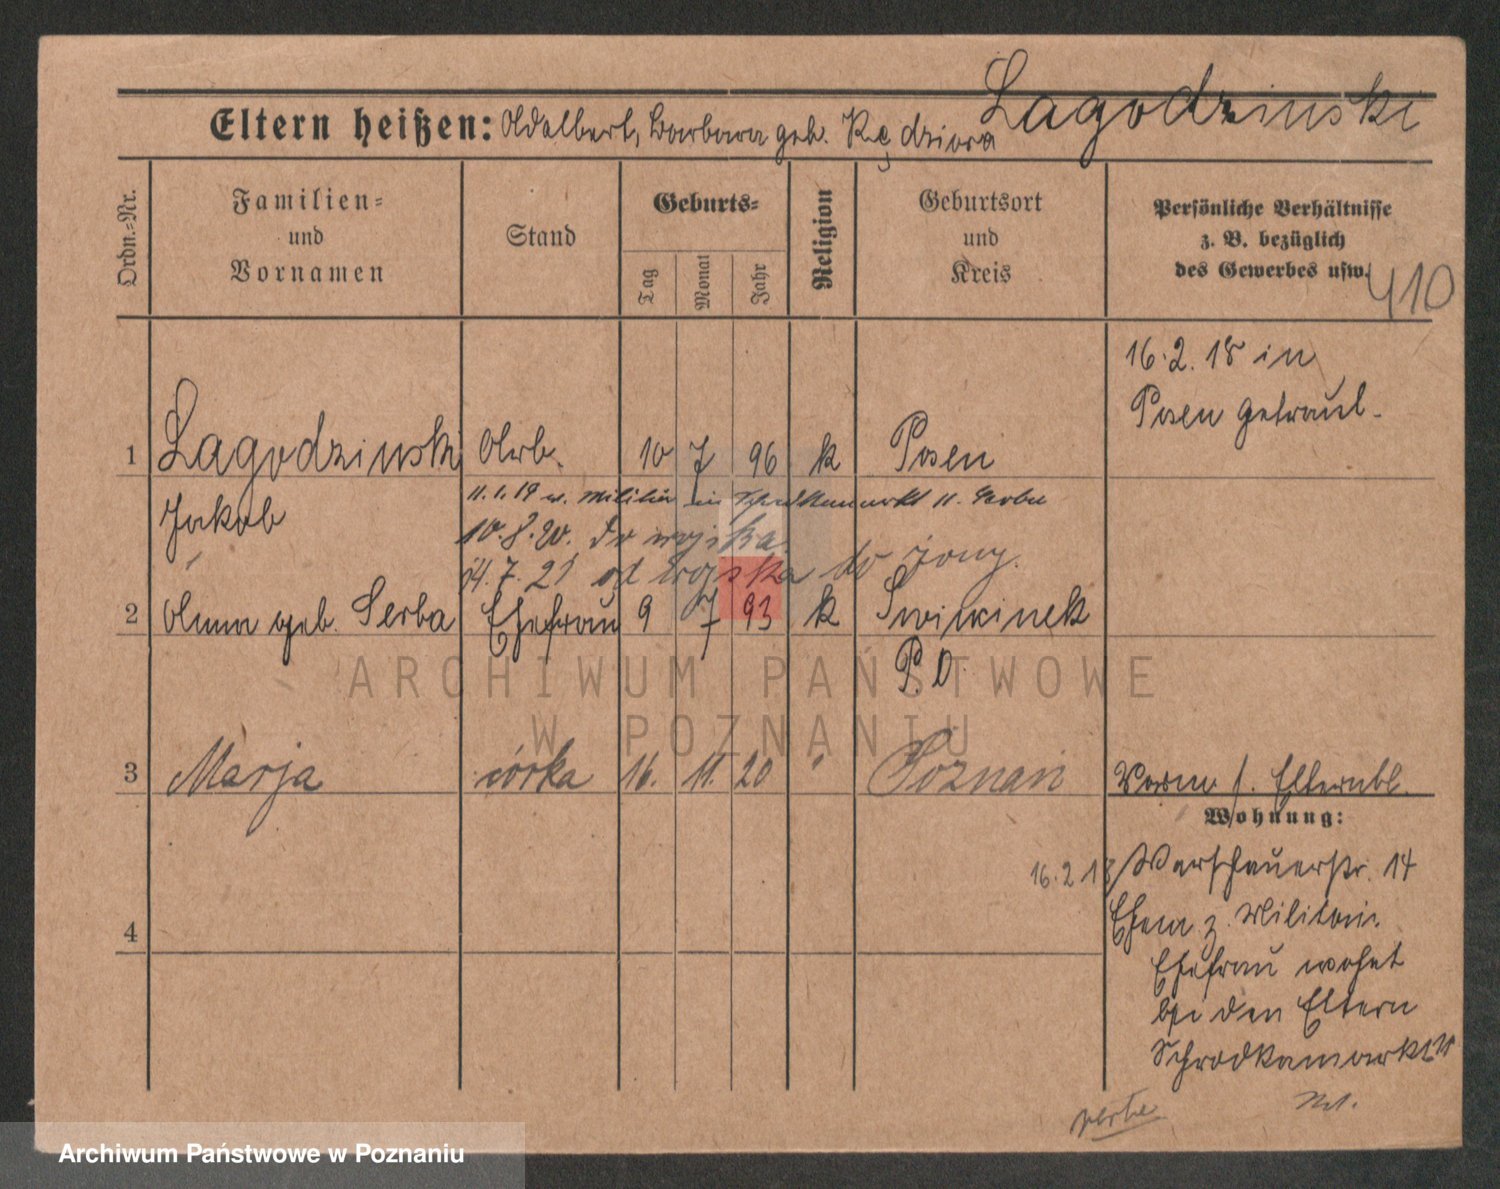 Lagodzinski
Eltern heißen: Adalbert, Barbara geb. Kędziora
Ordn.-Nr.
Familien-
und
Vornamen
Stand
Geburts-
Tag
Monat
Jahr
Religion
Geburtsort
und
Kreis
Persönliche Verhältnisse
z. B. bezüglich
des Gewerbes usw.
410
16.2.18 in
Posen getraut.
1 Lagodzinski Arb. 10 7 96 k Posen
Jakob
11.1.19 v. Militär in Schrodkamarkt 11. Serba
10.8.20. do wojska.
14.7.21 od wojska do żony.
2 Anna geb. Serba Ehefrau 9 7 93 k Swincinek
P. O.
3 Marja córka 16. 11. 20 " Poznań
Vorm. s. Elternbl.
Wohnung:
16.2.18 Warschauerstr. 14
Ehem. z. Militär.
4
Ehefrau wohnt
bei den Eltern
Schrodkamarkt 11
verte
ARCHIWUM PAŃSTWOWE
W POZNANIU
Archiwum Państwowe w Poznaniu